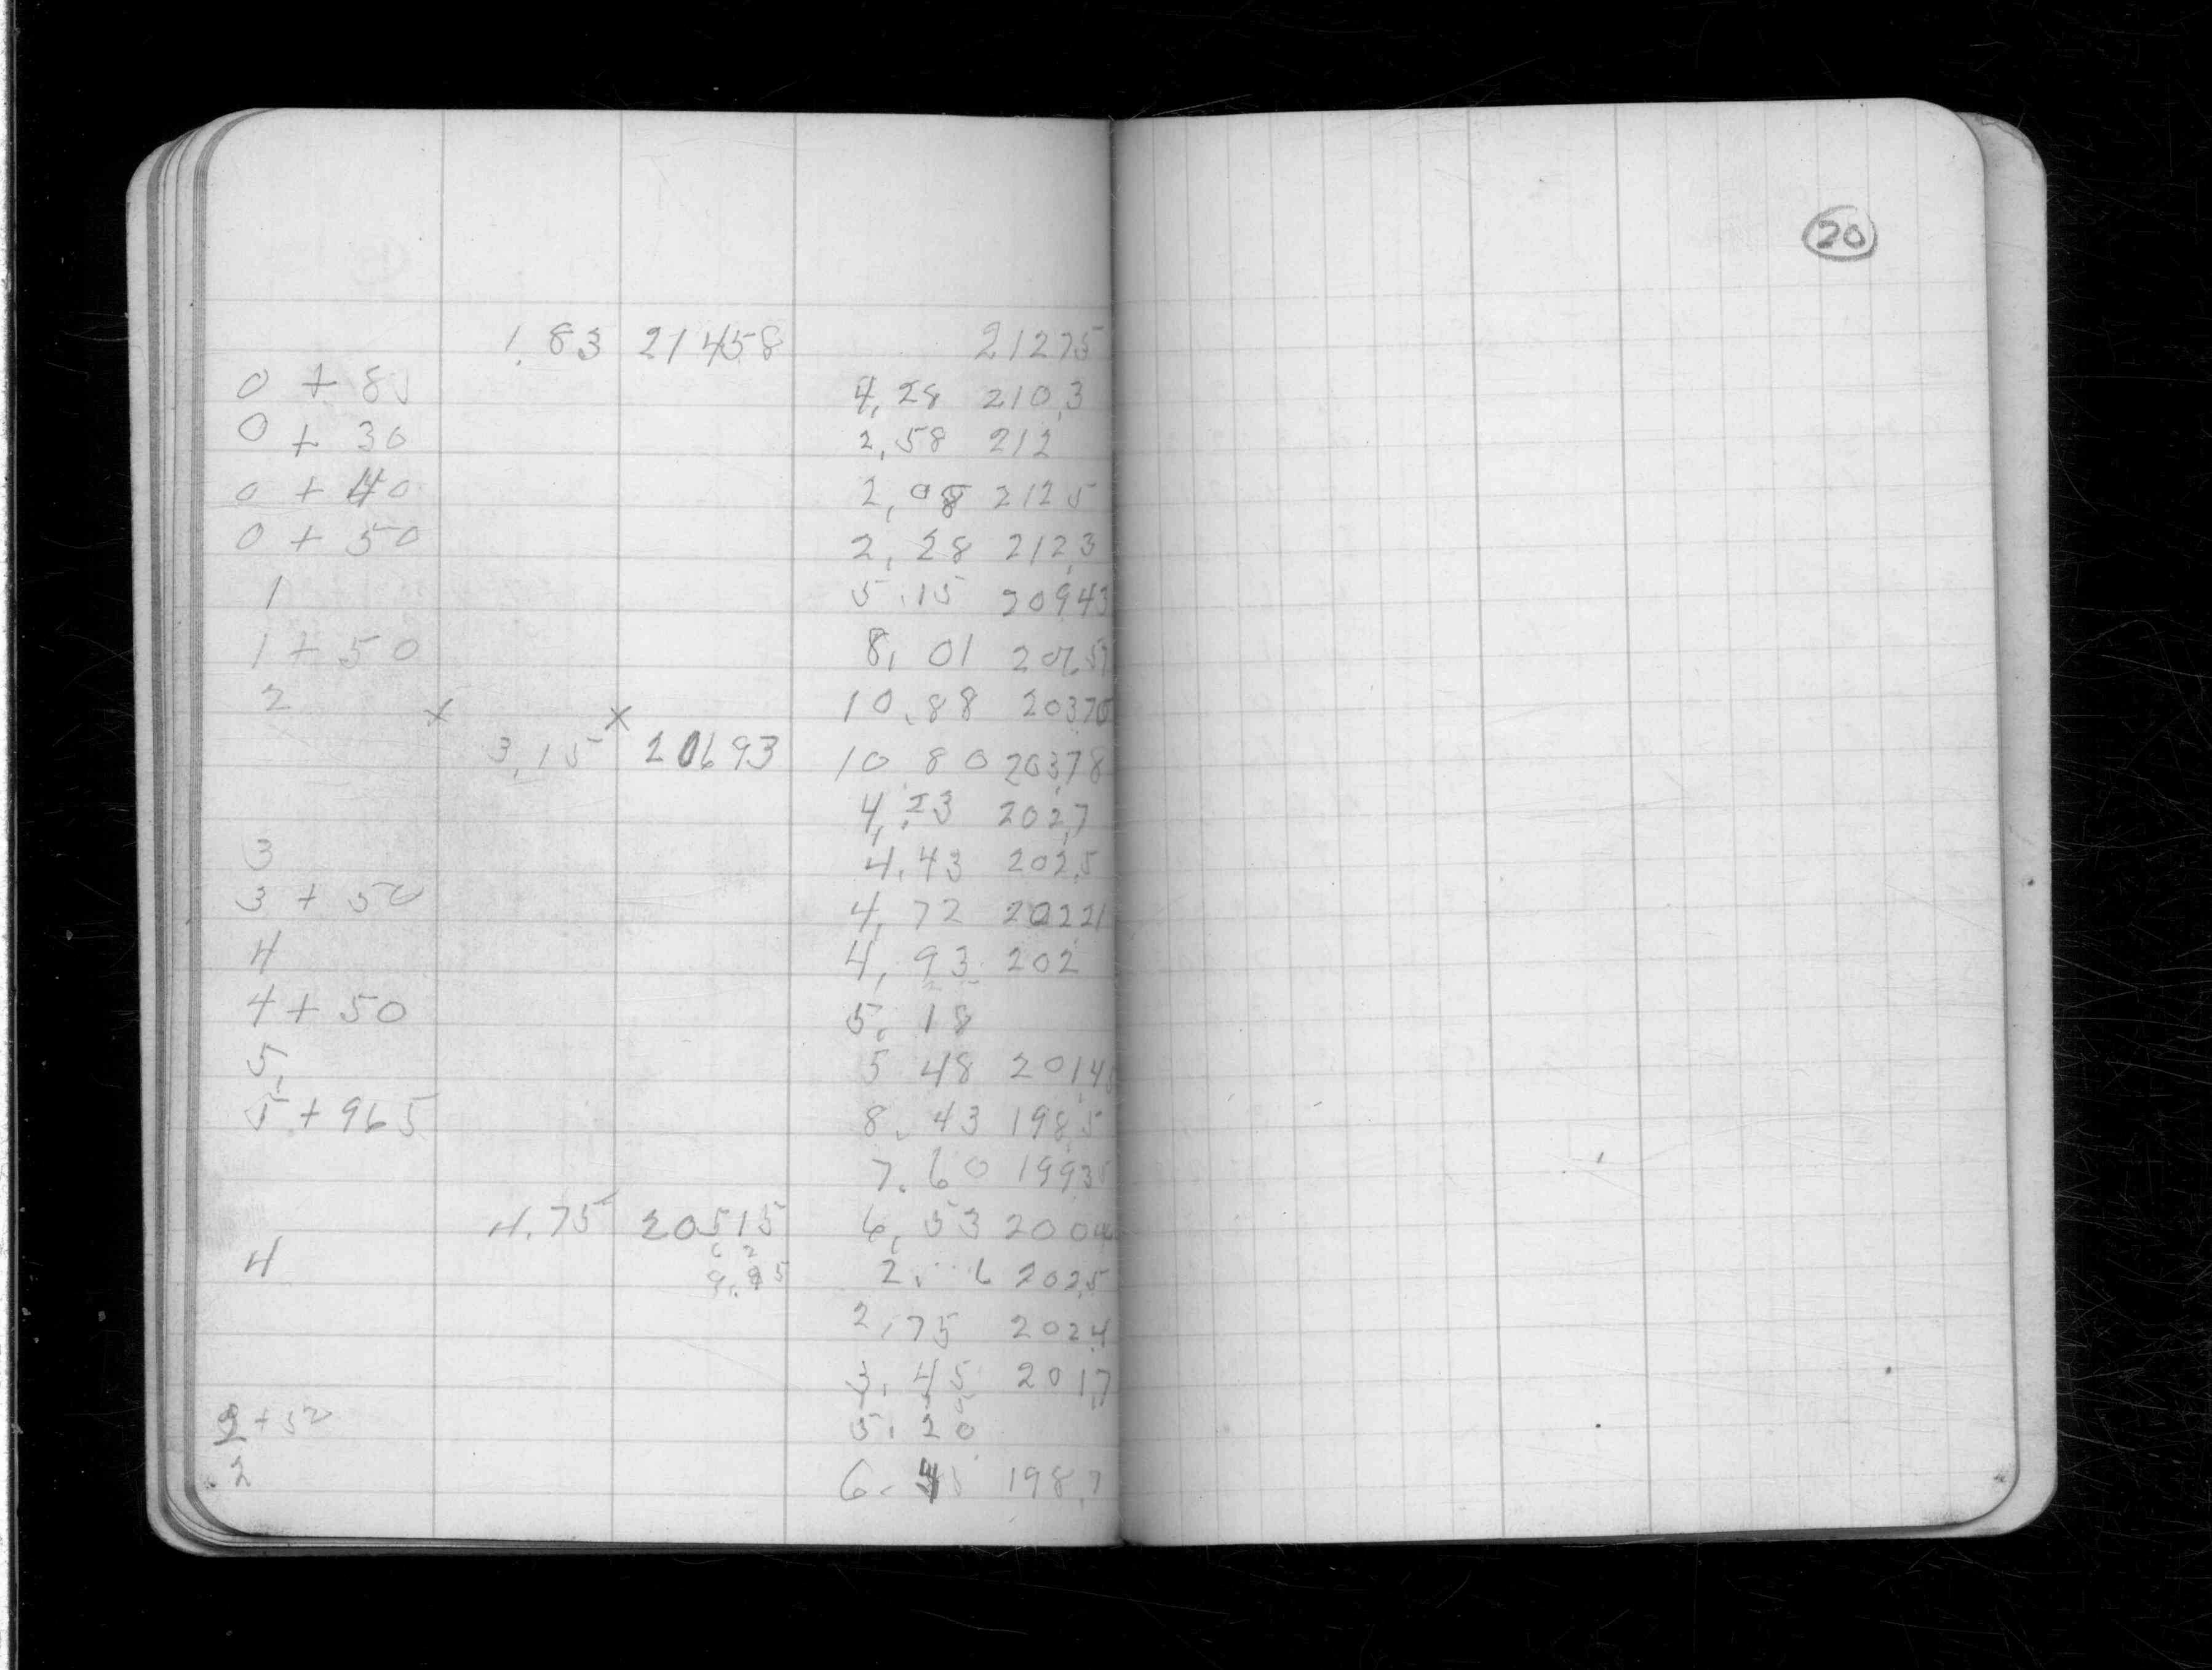 1.83 21458 21275
0 + 8 4,28 210,3
0 + 30 2,58 212
0 + 40 2,08 2125
0 + 50 2,28 212,3
1 5.15 20943
1 + 50 8,01 207.57
2 10.88 20370
x 3,15 x 20693 10.80 20378
4,23 202,7
3 4.43 202,5
3 + 50 4,72 20221
4 4,93 202
4 + 50 5.18
5, 5 48 201,4
5 + 965 8.43 198,5
7.60 19935
4.75 20515 6,53 200
4 2. 6 202,5
2,75 202,4
3.45 201,7
2 + 50 5.20
2 6. 198,7
20